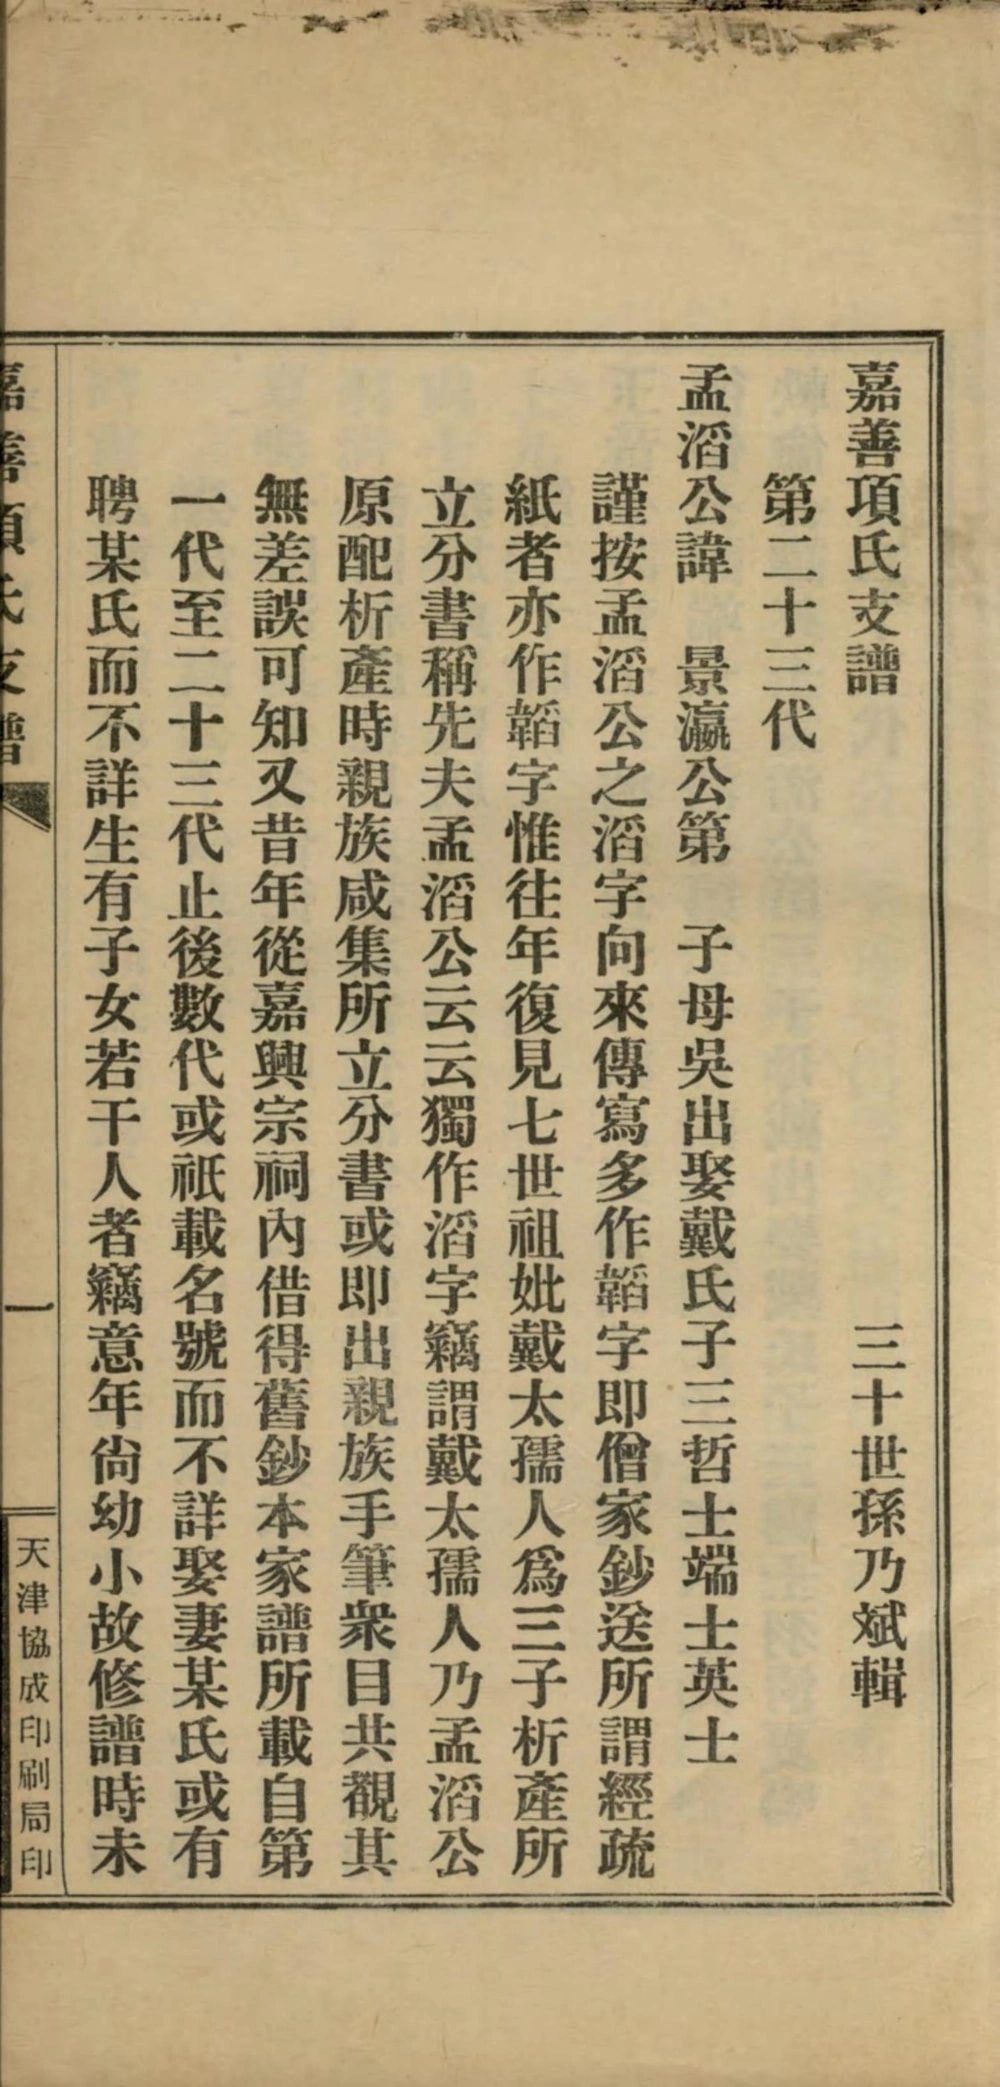 嘉善項氏支譜　三十世孫乃斌輯
第二十三代
孟滔公諱　景瀛公第　子母吳出娶戴氏子三哲士端士英士
謹按孟滔公之滔字向來傳寫多作韜字即僧家鈔送所謂經疏
紙者亦作韜字惟往年復見七世祖妣戴太孺人為三子析產所
立分書稱先夫孟滔公云云獨作滔字竊謂戴太孺人乃孟滔公
原配析產時親族咸集所立分書或即出親族手筆衆目共覩其
無差誤可知又昔年從嘉興宗祠內借得舊鈔本家譜所載自第
一代至二十三代止後數代或祇載名號而不詳娶妻某氏或有
聘某氏而不詳生有子女若干人者竊意年尚幼小故修譜時未
嘉善項氏支譜
一
天津協成印刷局印